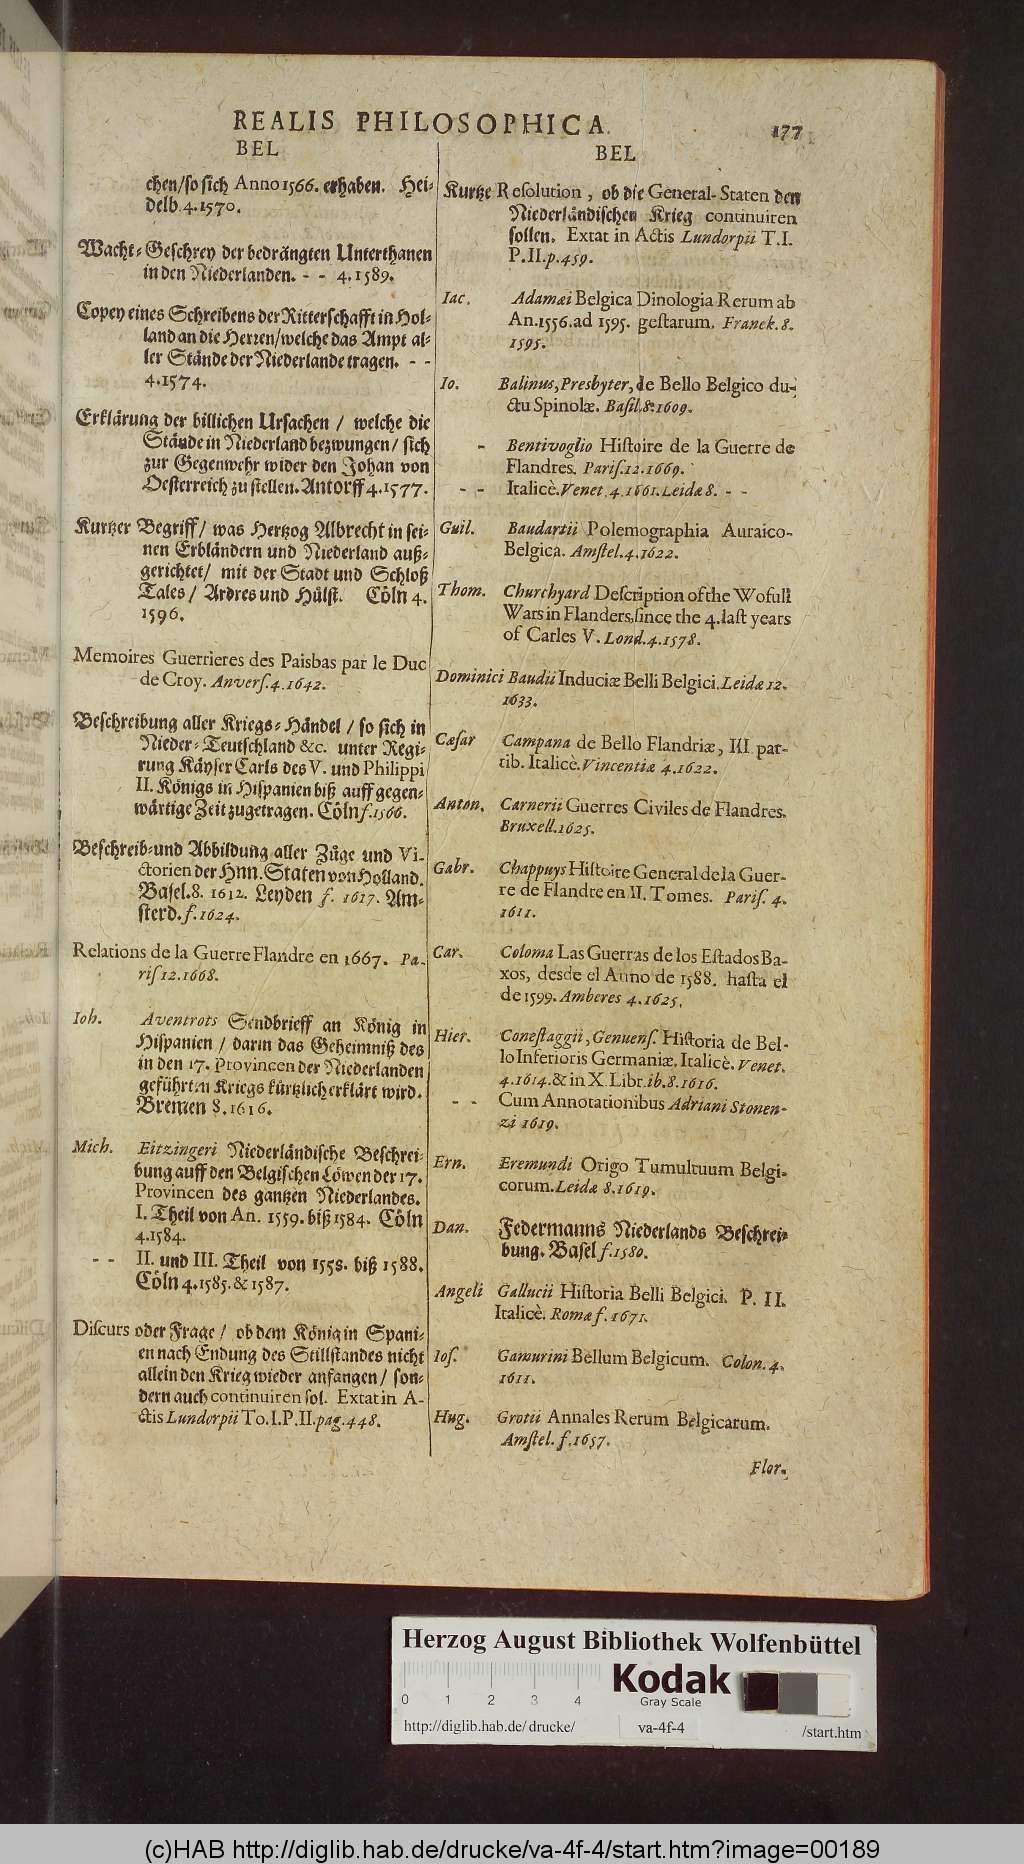 REALIS PHILOSOPHICA.
177
BEL
chen/ so sich Anno 1566. erhaben. Hei-
delb. 4. 1570.
Wacht-Geschrey der bedrängten Unterthanen
in den Niederlanden. - - 4. 1589.
Copey eines Schreibens der Ritterschafft in Hol-
land an die Herren/ welche das Ampt al-
ler Stände der Niederlande tragen. - -
4. 1574.
Erklärung der billichen Ursachen / welche die
Stände in Niederland bezwungen/ sich
zur Gegenwehr wider den Johan von
Oesterreich zu stellen. Antorff 4. 1577.
Kurtzer Begriff/ was Hertzog Albrecht in sei-
nen Erbländern und Niederland auß-
gerichtet/ mit der Stadt und Schloß
Tales/ Ardres und Hülst. Cöln 4.
1596.
Memoires Guerrieres des Paisbas par le Duc
de Croy. Anvers. 4. 1642.
Beschreibung aller Kriegs-Händel / so sich in
Nieder-Teutschland &c. unter Regi-
rung Käyser Carls des V. und Philippi
II. Königs in Hispanien biß auff gegen-
wärtige Zeit zugetragen. Cöln f. 1566.
Beschreib-und Abbildung aller Züge und Vi-
ctorien der Hnn. Staten von Holland.
Basel. 8. 1612. Leyden f. 1617. Am-
sterd. f. 1624.
Relations de la Guerre Flandre en 1667. Pa-
ris 12. 1668.
Ioh. Aventrots Sendbrieff an König in
Hispanien / darin das Geheimniß des
in den 17. Provincen der Niederlanden
geführten Kriegs kürtzlich erklärt wird.
Bremen 8. 1616.
Mich. Eitzingeri Niederländische Beschrei-
bung auff den Belgischen Löwen der 17.
Provincen des gantzen Niederlandes.
I. Theil von An. 1559. biß 1584. Cöln
4. 1584.
- - II. und III. Theil von 1558. biß 1588.
Cöln 4. 1585. & 1587.
Discurs oder Frage / ob dem König in Spani-
en nach Endung des Stillstandes nicht
allein den Krieg wieder anfangen / son-
dern auch continuiren sol. Extat in A-
ctis Lundorpii To. I. P. II. pag. 448.
BEL
Kurtze Resolution, ob die General-Staten den
Niederländischen Krieg continuiren
sollen. Extat in Actis Lundorpii T. I.
P. II. p. 459.
Iac. Adamæi Belgica Dinologia Rerum ab
An. 1556. ad 1595. gestarum. Franck. 8.
1595.
Io. Balinus, Presbyter, de Bello Belgico du-
ctu Spinolæ. Basil. 8. 1609.
- Bentivoglio Histoire de la Guerre de
Flandres. Paris. 12. 1669.
- - Italicè. Venet. 4. 1661. Leidæ 8. - -
Guil. Baudartii Polemographia Auraico-
Belgica. Amstel. 4. 1622.
Thom. Churchyard Description of the Wofull
Wars in Flanders, since the 4. last years
of Carles V. Lond. 4. 1578.
Dominici Baudii Induciæ Belli Belgici. Leidæ 12.
1633.
Cæsar Campana de Bello Flandriæ, III par-
tib. Italicè. Vincentiæ 4. 1622.
Anton. Carnerii Guerres Civiles de Flandres.
Bruxell. 1625.
Gabr. Chappuys Histoire General de la Guer-
re de Flandre en II. Tomes. Paris. 4.
1611.
Car. Coloma Las Guerras de los Estados Ba-
xos, desde el Anno de 1588. hasta el
de 1599. Amberes 4. 1625.
Hier. Conestaggii, Genuens. Historia de Bel-
lo Inferioris Germaniæ. Italicè. Venet.
4. 1614. & in X. Libr. ib. 8. 1616.
- - Cum Annotationibus Adriani Stonen-
zi 1619.
Ern. Eremundi Origo Tumultuum Belgi-
corum. Leidæ 8. 1619.
Dan. Federmanns Niederlands Beschrei-
bung. Basel f. 1580.
Angeli Gallucii Historia Belli Belgici. P. II.
Italicè. Romæ f. 1671.
Ios. Gamurini Bellum Belgicum. Colon. 4.
1611.
Hug. Grotii Annales Rerum Belgicarum.
Amstel. f. 1657.
Flor.
Herzog August Bibliothek Wolfenbüttel
0 1 2 3 4
Kodak
Gray Scale
http://diglib.hab.de/drucke/ va-4f-4 /start.htm
(c)HAB http://diglib.hab.de/drucke/va-4f-4/start.htm?image=00189